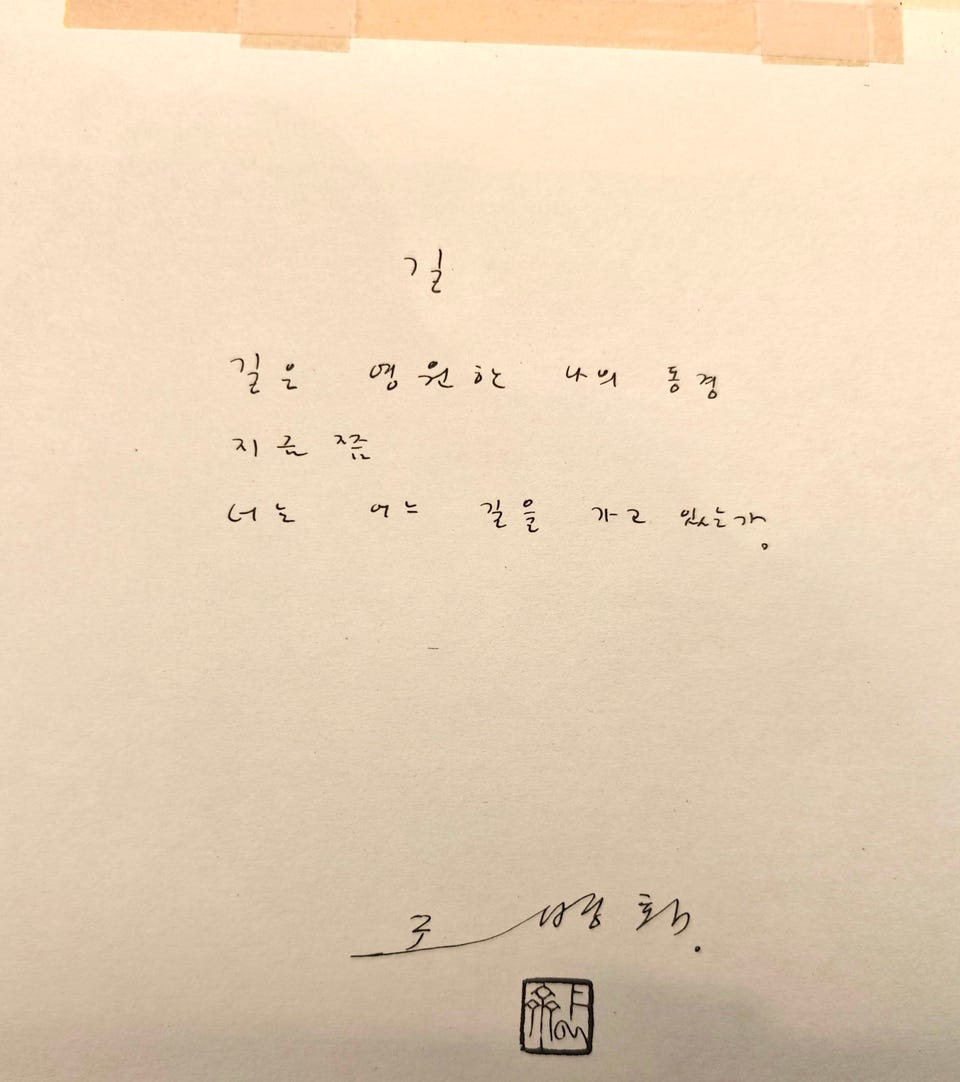 길
길은 영원한 나의 동경
지금쯤
너는 어느 길을 가고 있는가.
조병화.